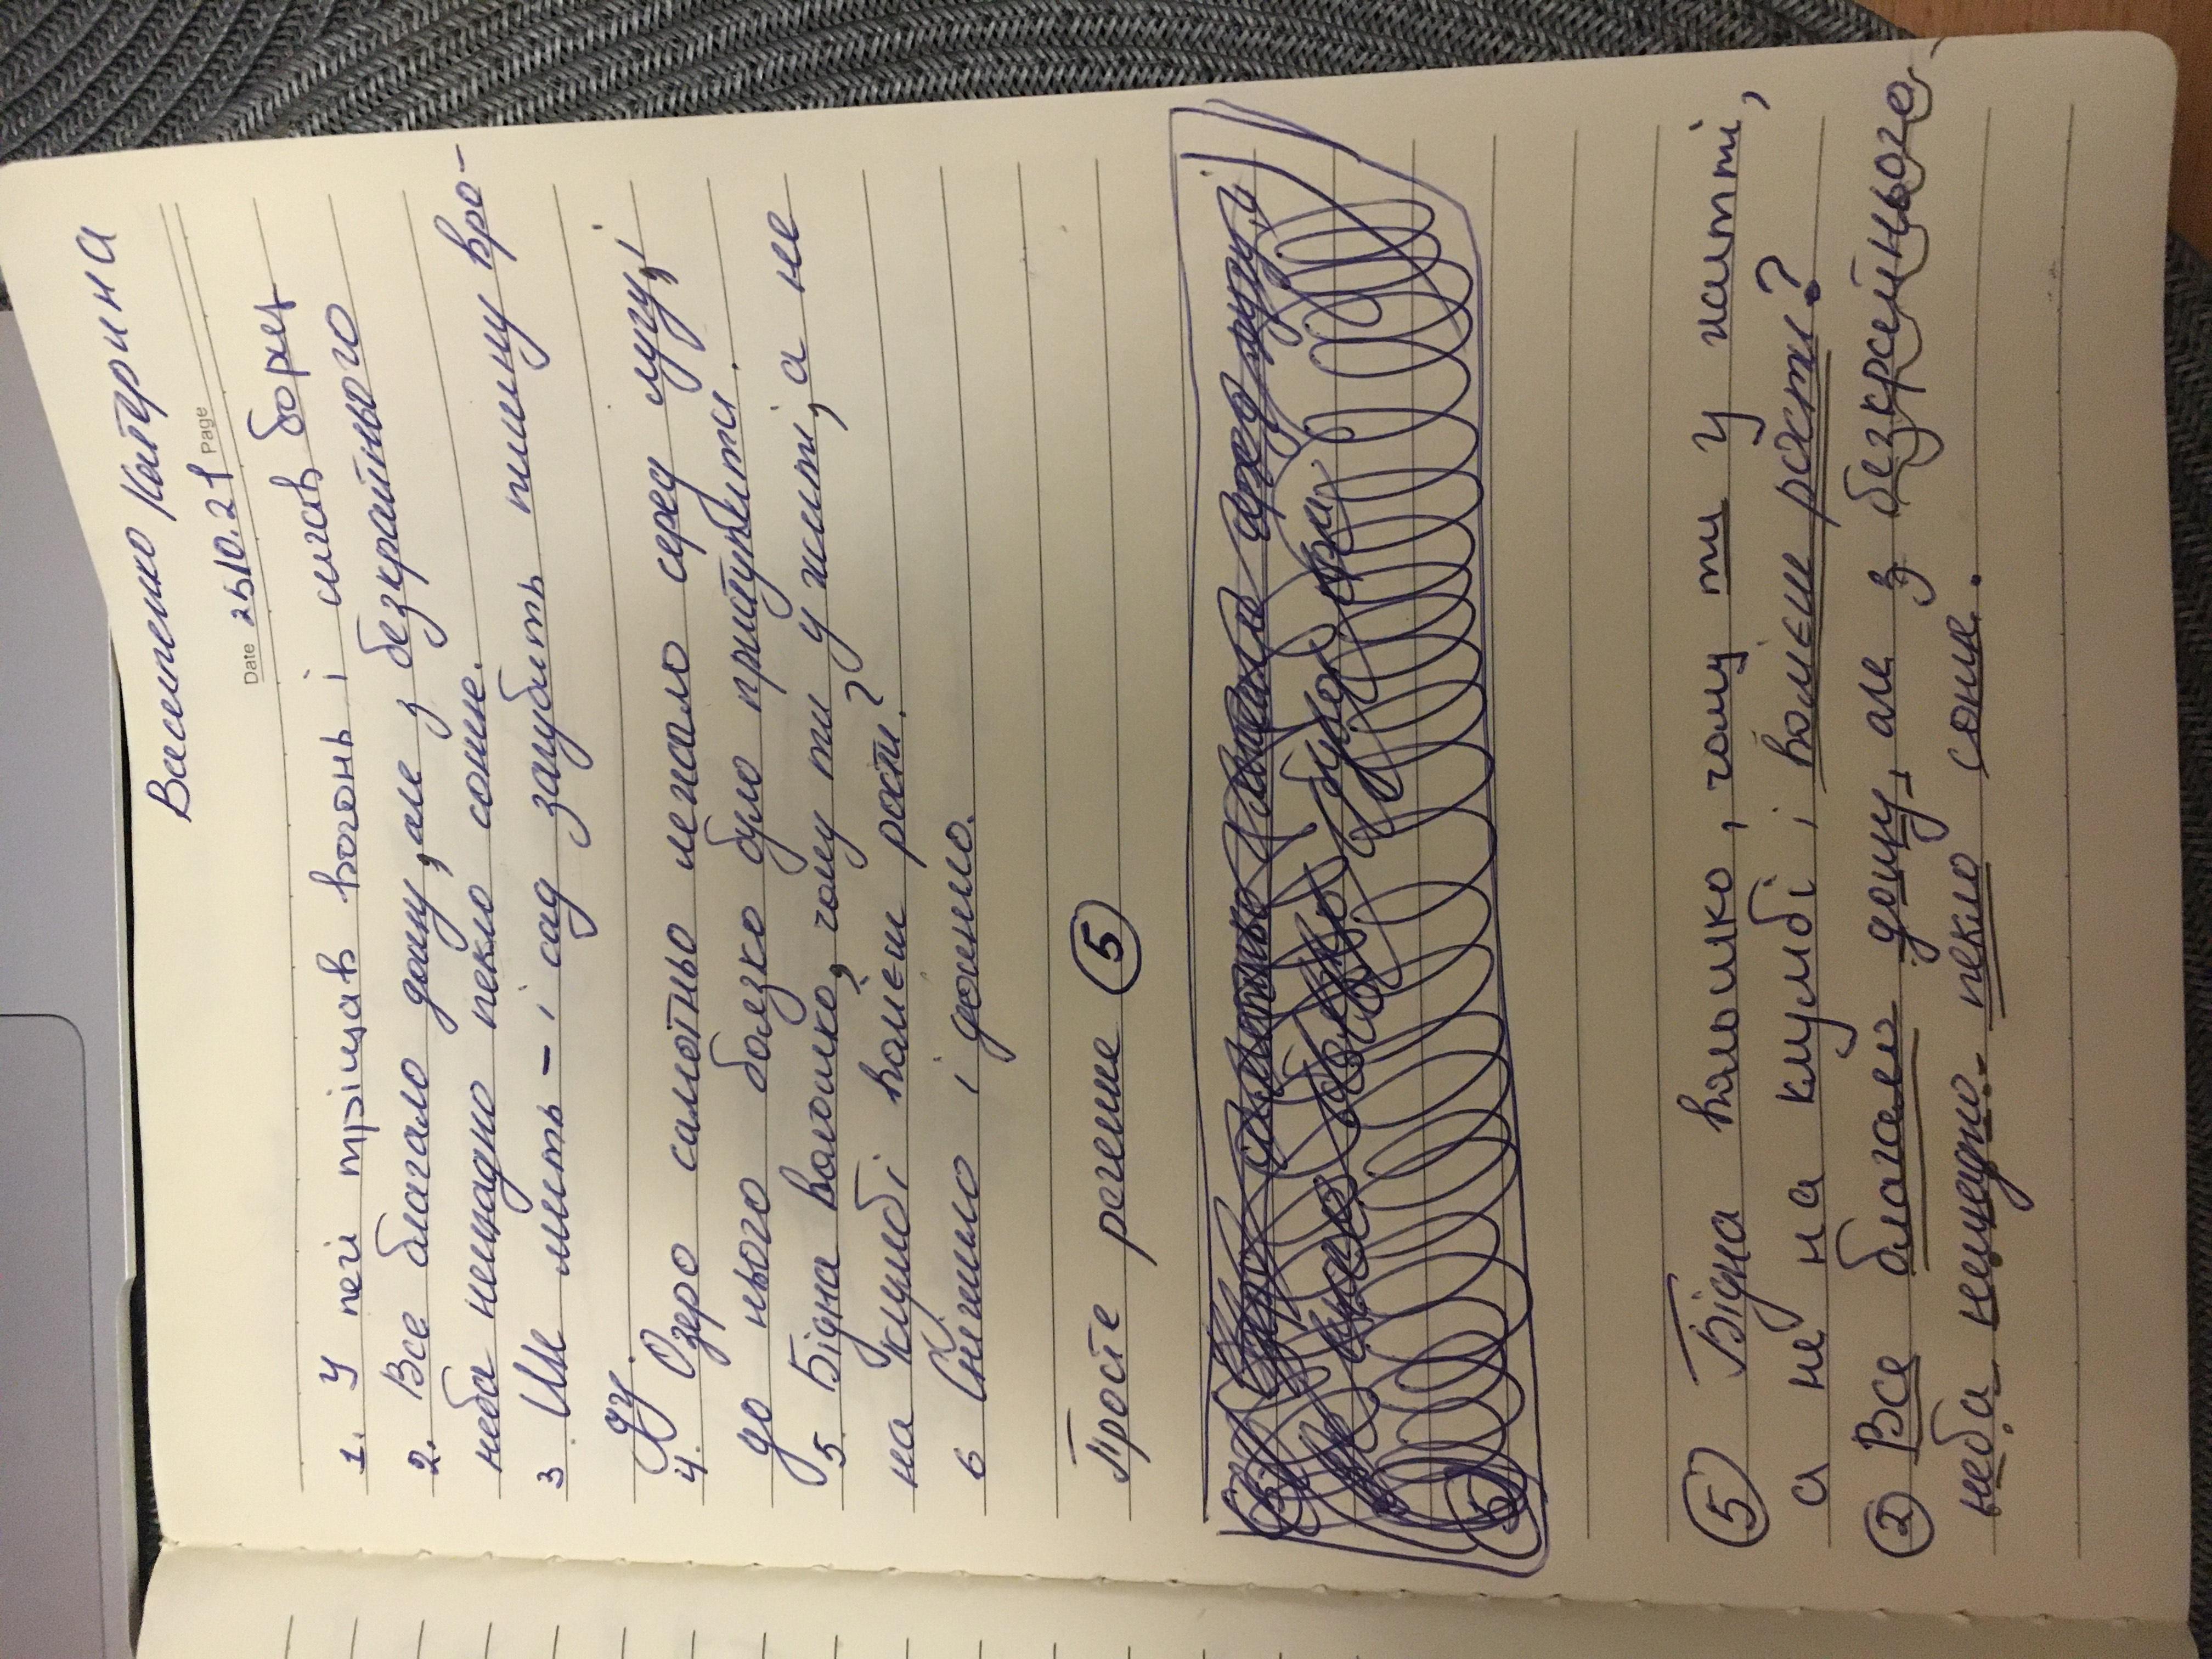 Василенко Катерина
Date 25.10.21 Page
1. У печі тріщав вогонь і чигав борщ
2. Все благало дощу, але з безкрайнього
неба нещадно пекло сонце.
3 Ще мить – і сад загубить пишну вро-
ду.
4. Озеро самотньо лежало серед лугу, і
до нього боязко було приступити.
5. Бідна волошко, чому ти у житі, а не
на клумбі волієш рости?
6 Сніжило і дощило.
Просте речене (5)
(5) Бідна волошко, чому ти у житті,
а не на клумбі, волієш рости?
(2) Все благало дощу, але з безкрейнього
неба нещадно пекло сонце.